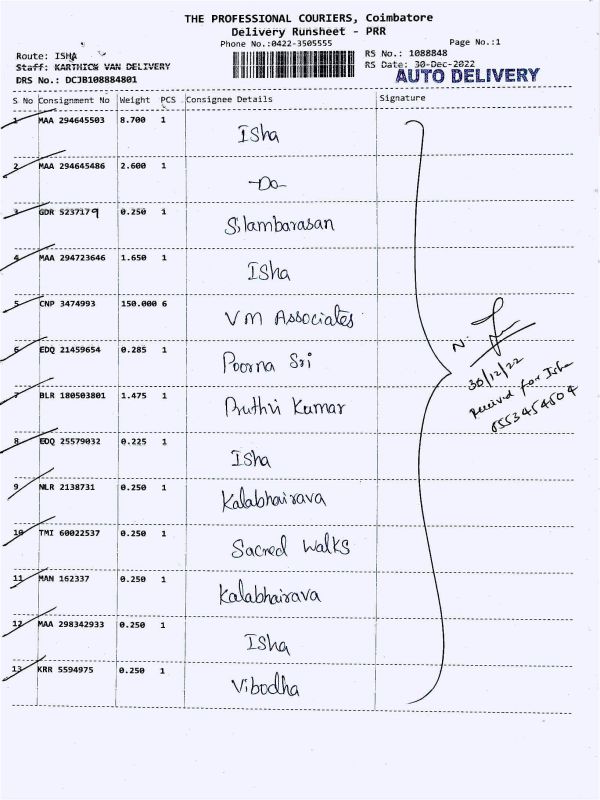 THE PROFESSIONAL COURIERS, Coimbatore
Delivery Runsheet - PRR
Phone No.:0422-3505555
Page No.:1
Route: ISHA
RS No.: 1088848
Staff: KARTHICK VAN DELIVERY
RS Date: 30-Dec-2022
DRS No.: DCJB108884801
AUTO DELIVERY
S No Consignment No Weight PCS Consignee Details Signature
1 MAA 294645503 8.700 1 Isha
2 MAA 294645486 2.600 1 -Do-
3 GDR 5237179 0.250 1 Silambarasan
4 MAA 294723646 1.650 1 Isha
5 CNP 3474993 150.000 6 VM Associates
6 EDQ 21459654 0.285 1 Poorna Sri
7 BLR 180503801 1.475 1 Pruthvi Kumar
8 EDQ 25579032 0.225 1 Isha
9 NLR 2138731 0.250 1 Kalabhairava
10 TMI 60022537 0.250 1 Sacred Walks
11 MAN 162337 0.250 1 Kalabhairava
12 MAA 298342933 0.250 1 Isha
13 KRR 5594975 0.250 1 Vibodha
N.
30/12/22
Received for Isha